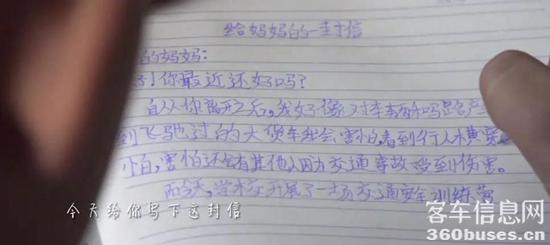 给妈妈的一封信
的妈妈：
你最近还好吗？
自从你离开之后，我好像对车辆和鸣笛产
到飞驰过的大货车我会害怕，看到行人横穿
害怕还会有其他人因为交通事故受到伤害。
而今天，学校开展了一场交通安全训练营
今天给你写下这封信
客车信息网
360buses.cn